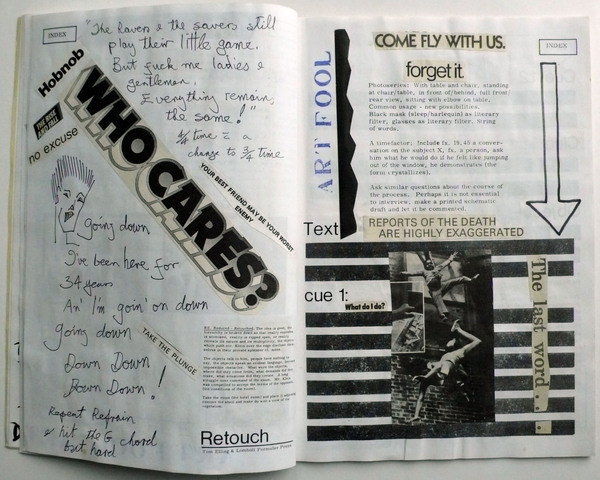 INDEX
"The Ravers & the savers still
play their little game.
But fuck me ladies &
gentlemen.
Everything remains
the same!"
4/4 time = a
change to 3/4 time
Hobnob
no excuse
WHO CARES?
YOUR BEST FRIEND MAY BE YOUR WORST
ENEMY
going down
I've been here for
34 years
An' I'm goin' on down
going down
Down Down
Down Down!
Repeat Refrain
hit the G chord
but hard
TAKE THE PLUNGE
Retouch
COME FLY WITH US.
INDEX
forget it.
ART FOOL
Photoseries: With table and chair, standing
at chair/table, in front of/behind, full front/
rear view, sitting with elbow on table.
Common usage - new possibilities.
Black mask (sleep/harlequin) as literary
filter, glasses as literary filter. String
of words.
A timefactor: Include fx. 19.45 a conver-
sation on the subject X, fx. a person, ask
him what he would do if he felt like jumping
out of the window, he demonstrates (the
form crystallizes).
Ask similar questions about the course of
the process. Perhaps it is not essential
to interview, make a primed schematic
draft and let it be commented.
Text
REPORTS OF THE DEATH
ARE HIGHLY EXAGGERATED
cue 1:
What do I do?
The last word...